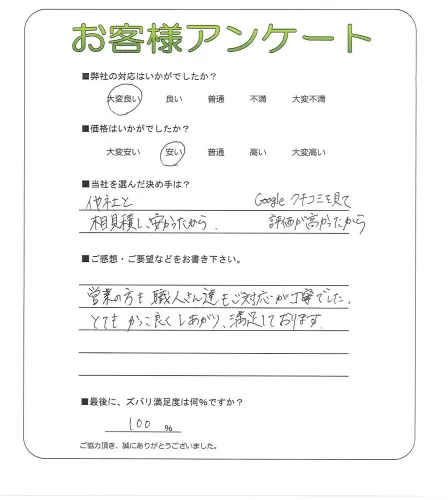 お客様アンケート
■弊社の対応はいかがでしたか?
大変良い 良い 普通 不満 大変不満
■価格はいかがでしたか?
大変安い 安い 普通 高い 大変高い
■当社を選んだ決め手は?
他社と Google クチコミを見て
相見積し、安かったから. 評価が高かったから
■ご感想・ご要望などをお書き下さい。
営業の方も 職人さん達もご対応が丁寧でした。
とても かっこ良く しあがり、満足しております.
■最後に、ズバリ満足度は何%ですか?
100 %
ご協力頂き、誠にありがとうございました。